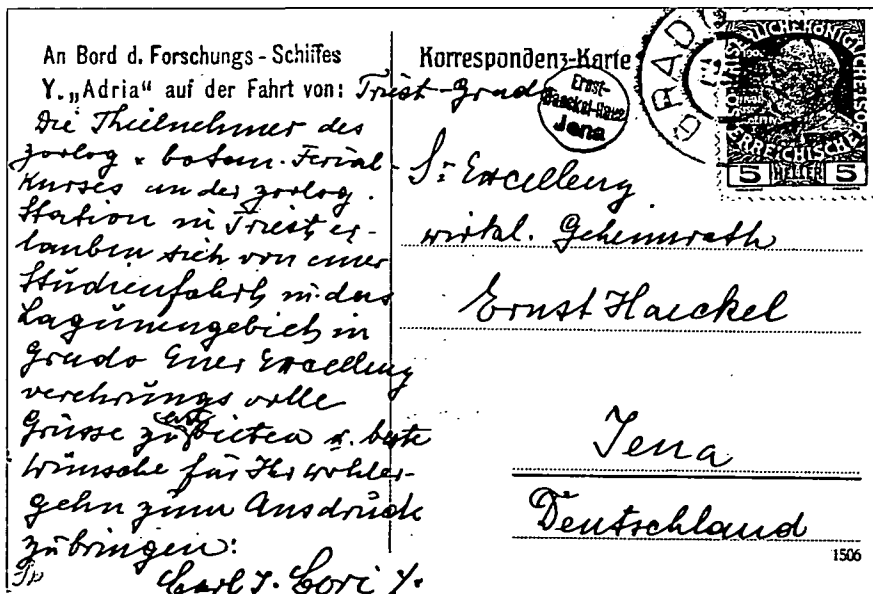 An Bord d. Forschungs-Schiffes
Y. „Adria" auf der Fahrt von: Triest-Grado
Die Theilnehmer des
zoolog. u. botan. Ferial-
Kurses an der zoolog.
Station in Triest, er-
lauben sich von einer
Studienfahrt in das
Lagunengebiet in
Grado Euer Excellenz
verehrungsvolle
Grüsse zu bieten u. beste
Wünsche für Ihr Wohler-
gehn zum Ausdruck
zu bringen:
Carl I. Cori
Korrespondenz-Karte
Ernst-
Haeckel-Haus
Jena
GRADO
5 HELLER 5
Sr Excellenz
wirkl. Geheimrath
Ernst Haeckel
Jena
Deutschland
1506